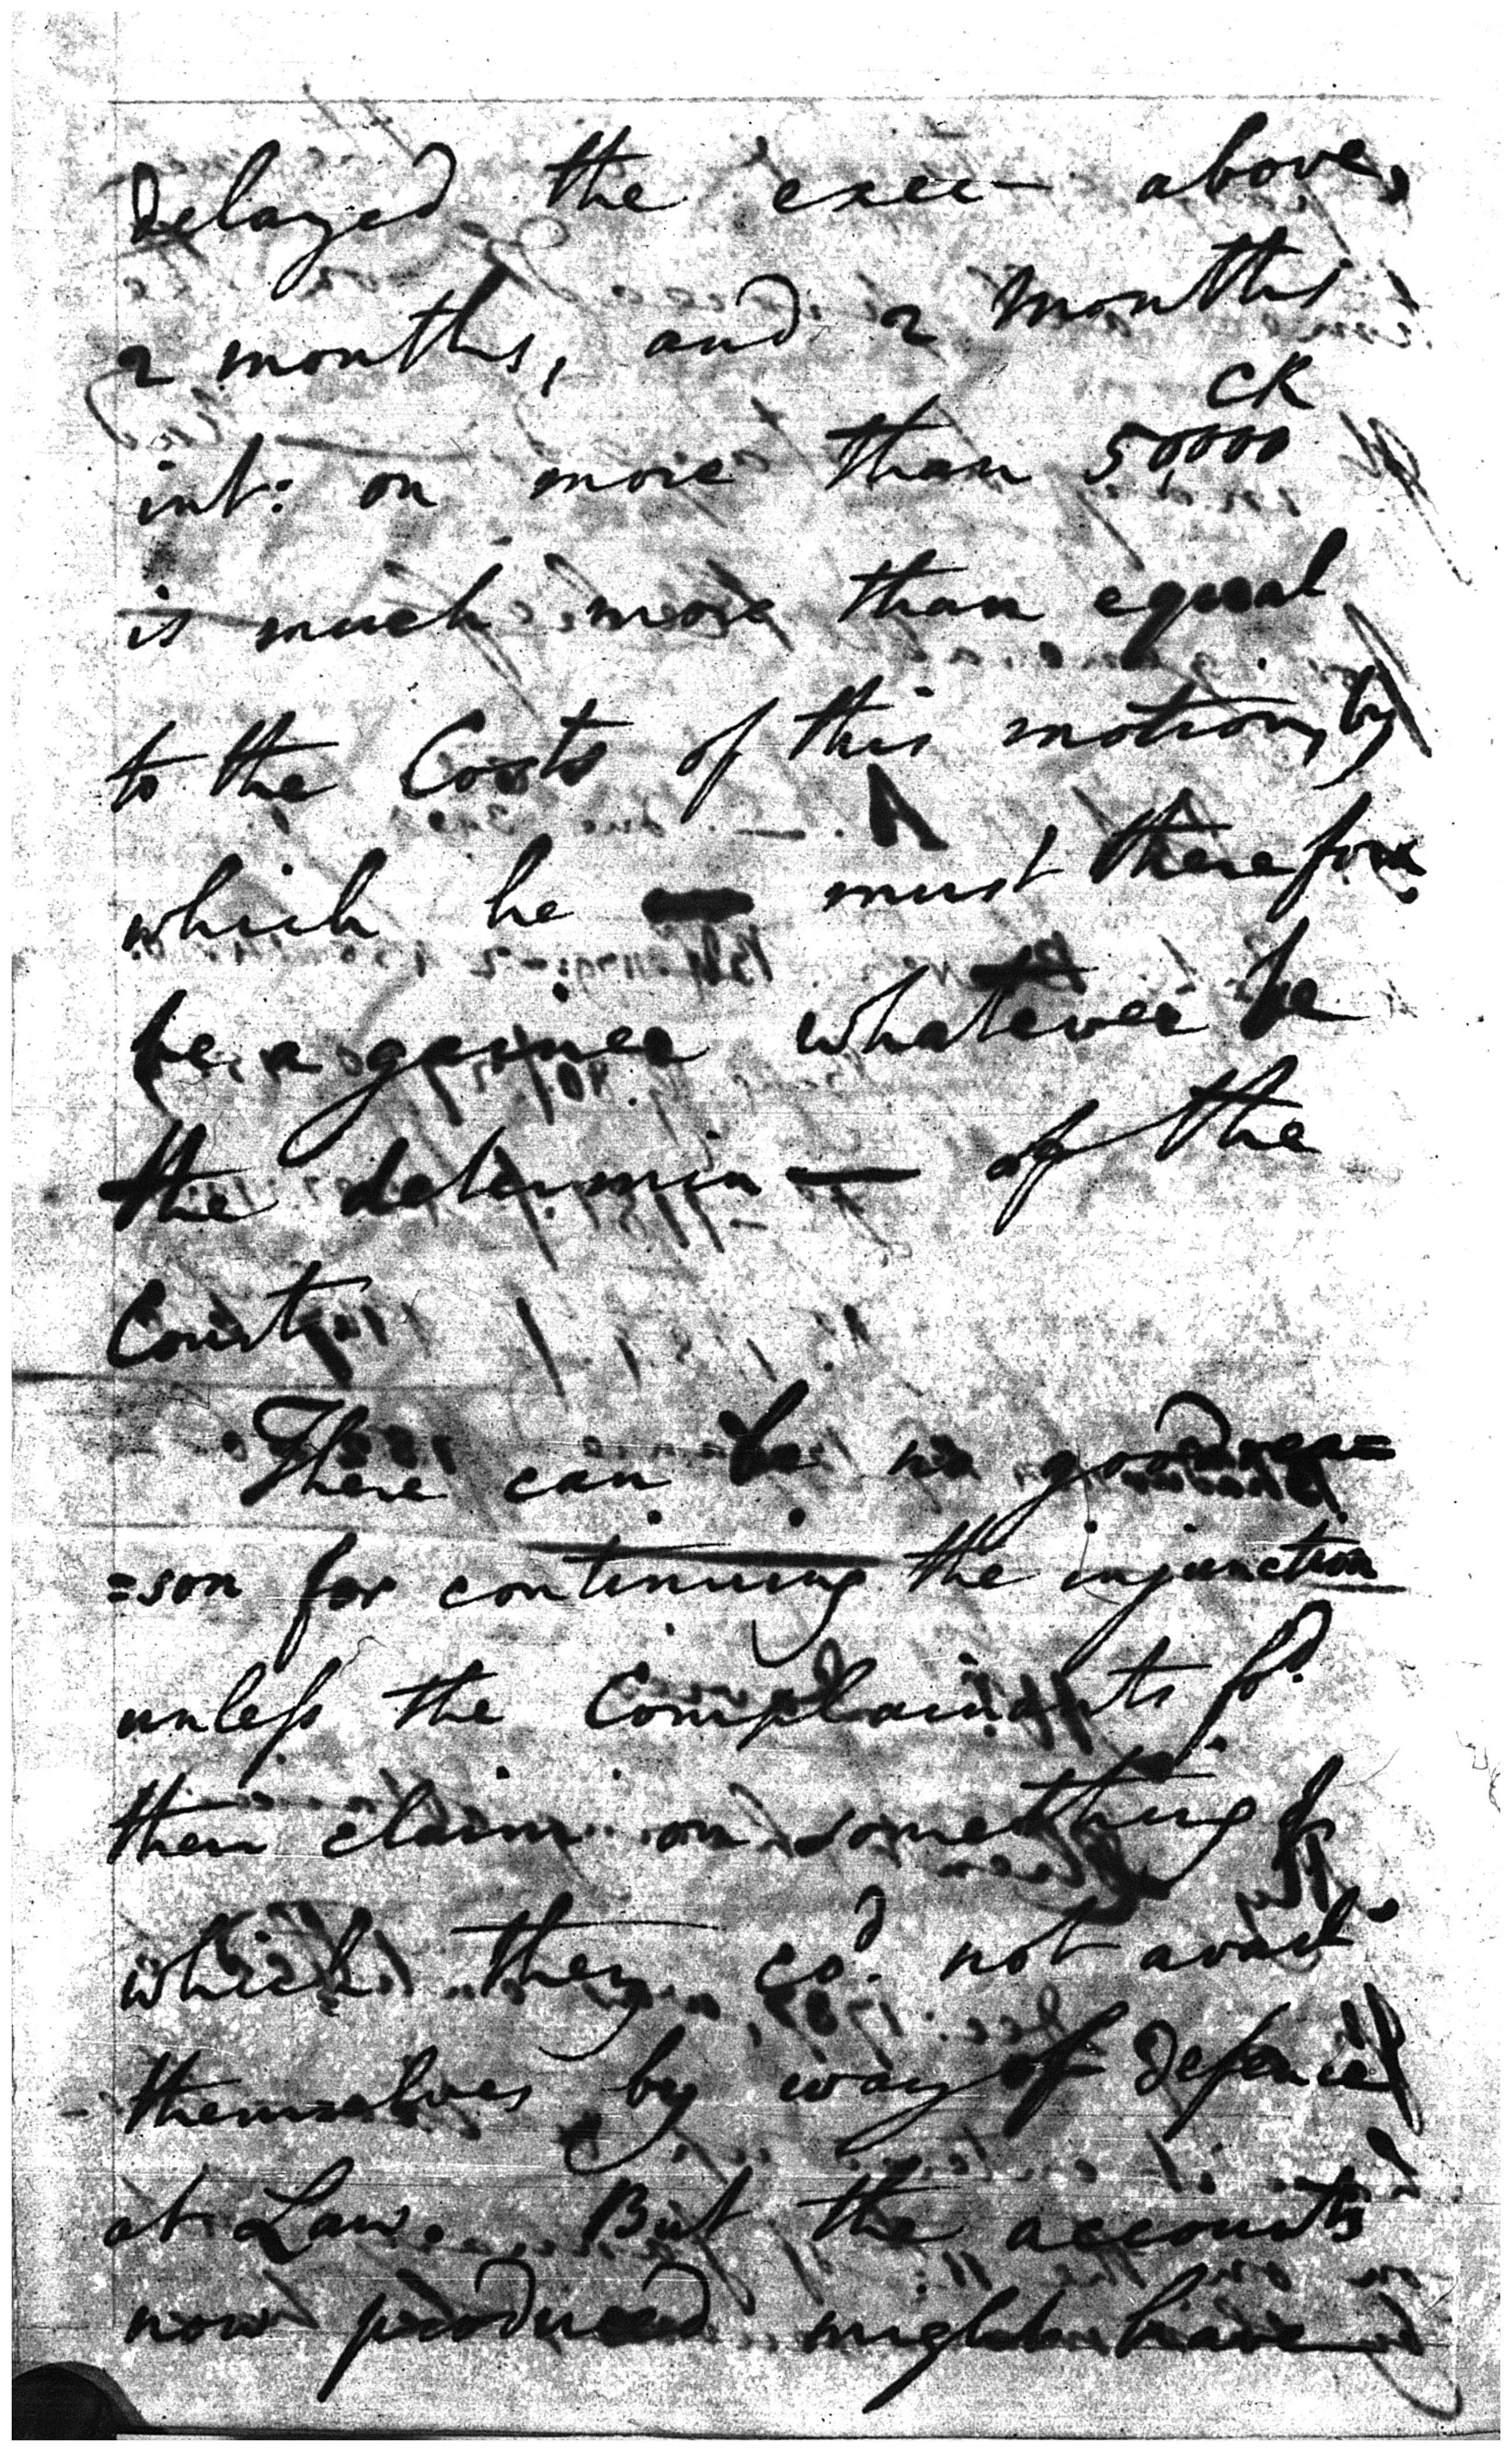 delayed the exec— above,
2 months, and 2 months
CR
int: on more than 50,000
is much more than equal
to the Costs of this motion, by
which he must therefore
be a gainer whatever be
the determin— of the
Court.
There can be no good rea=
=son for continuing the injunction
unless the Complainants fod.
their claim on something of
which they cod. not avail
themselves by way of defence
at Law. But the accounts
now produced might have